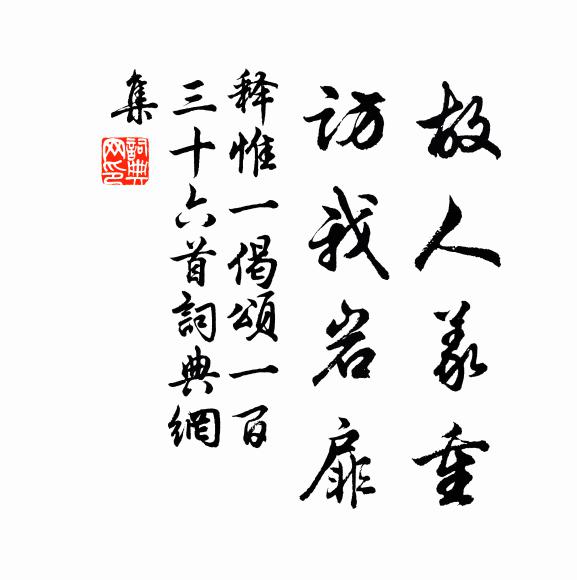 故人义重
访我岩扉
释惟一偈颂一百
三十六首詞典網
集
詞典
网印